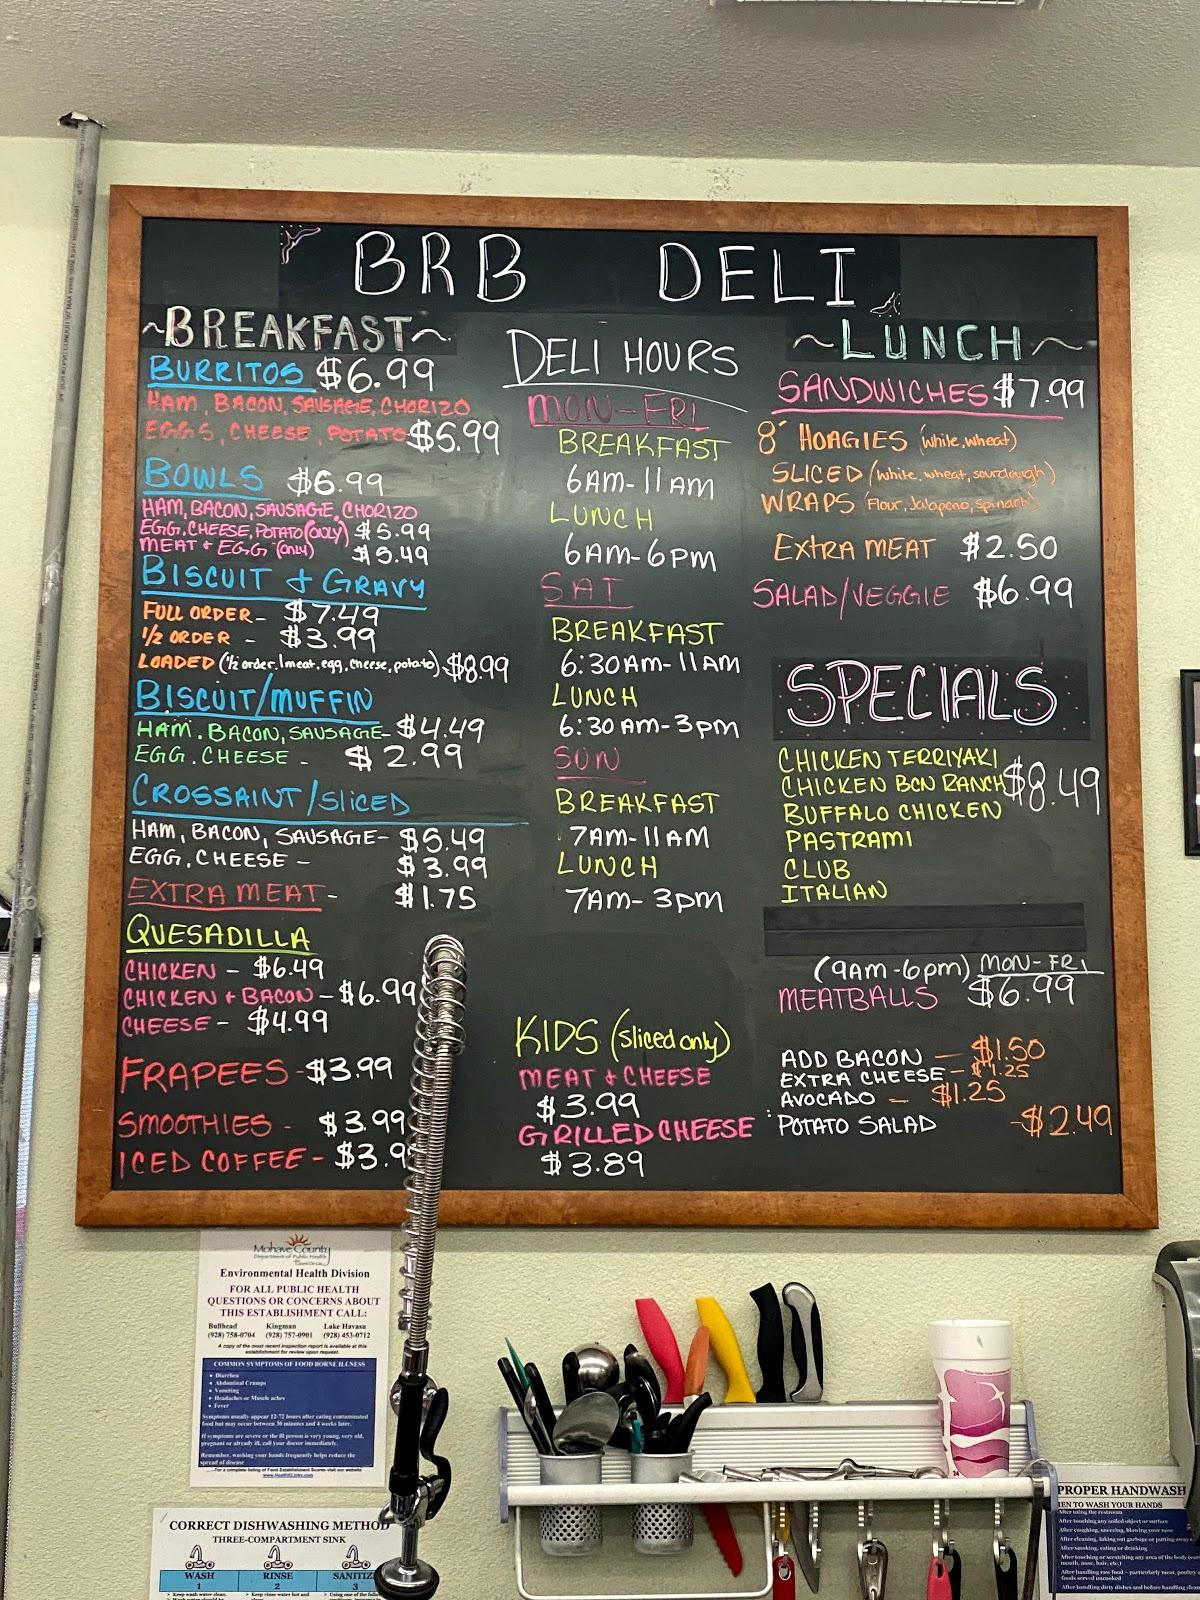 BRB DELI
~BREAKFAST~
BURRITOS $6.99
HAM, BACON, SAUSAGE, CHORIZO
EGGS, CHEESE, POTATO $5.99
BOWLS $6.99
HAM, BACON, SAUSAGE, CHORIZO
EGG, CHEESE, POTATO (ONLY) $5.99
MEAT + EGG (ONLY) $5.49
BISCUIT & GRAVY
FULL ORDER- $7.49
1/2 ORDER - $3.99
LOADED (1/2 order, 1 meat, egg, cheese, potato) $8.99
BISCUIT/MUFFIN
HAM, BACON, SAUSAGE- $4.49
EGG, CHEESE - $2.99
CROSSAINT/SLICED
HAM, BACON, SAUSAGE- $5.49
EGG, CHEESE - $3.99
EXTRA MEAT- $1.75
QUESADILLA
CHICKEN - $6.49
CHICKEN + BACON - $6.99
CHEESE - $4.99
FRAPEES - $3.99
SMOOTHIES - $3.99
ICED COFFEE - $3.9
DELI HOURS
MON-FRI
BREAKFAST
6AM-11AM
LUNCH
6AM-6PM
SAT
BREAKFAST
6:30AM-11AM
LUNCH
6:30AM-3PM
SUN
BREAKFAST
7AM-11AM
LUNCH
7AM-3PM
KIDS (sliced only)
MEAT + CHEESE
$3.99
GRILLED CHEESE
$3.89
~LUNCH~
SANDWICHES $7.99
8" HOAGIES (white, wheat)
SLICED (white, wheat, sourdough)
WRAPS (Flour, Jalapeno, Spinach)
EXTRA MEAT $2.50
SALAD/VEGGIE $6.99
SPECIALS
CHICKEN TERRIYAKI
CHICKEN BCN RANCH $8.49
BUFFALO CHICKEN
PASTRAMI
CLUB
ITALIAN
(9AM-6PM) MON-FRI
MEATBALLS $6.99
ADD BACON - $1.50
EXTRA CHEESE - $1.25
AVOCADO - $1.25
POTATO SALAD -$2.49
Mohave County
Department of Public Health
Environmental Health Division
FOR ALL PUBLIC HEALTH
QUESTIONS OR CONCERNS ABOUT
THIS ESTABLISHMENT CALL:
Bullhead Kingman Lake Havasu
(928) 758-0704 (928) 757-0901 (928) 453-0712
A copy of the most recent inspection report is available at this
establishment for review upon request.
COMMON SYMPTOMS OF FOOD BORNE ILLNESS
• Diarrhea
• Abdominal Cramps
• Vomiting
• Headaches or Muscle aches
• Fever
Symptoms usually appear 12-72 hours after eating contaminated
food but may occur between 30 minutes and 4 weeks later.
If symptoms are severe or the ill person is very young, very old,
pregnant or already ill, call your doctor immediately.
Remember, washing your hands frequently helps reduce the
spread of disease
For a complete listing of Food Establishment Scores visit our website
CORRECT DISHWASHING METHOD
THREE-COMPARTMENT SINK
WASH RINSE SANITIZ
1 2 3
PROPER HANDWASH
EN TO WASH YOUR HANDS
After using the restroom
After touching any soiled object or surface
After coughing, sneezing, blowing your nose
After smoking, eating or drinking